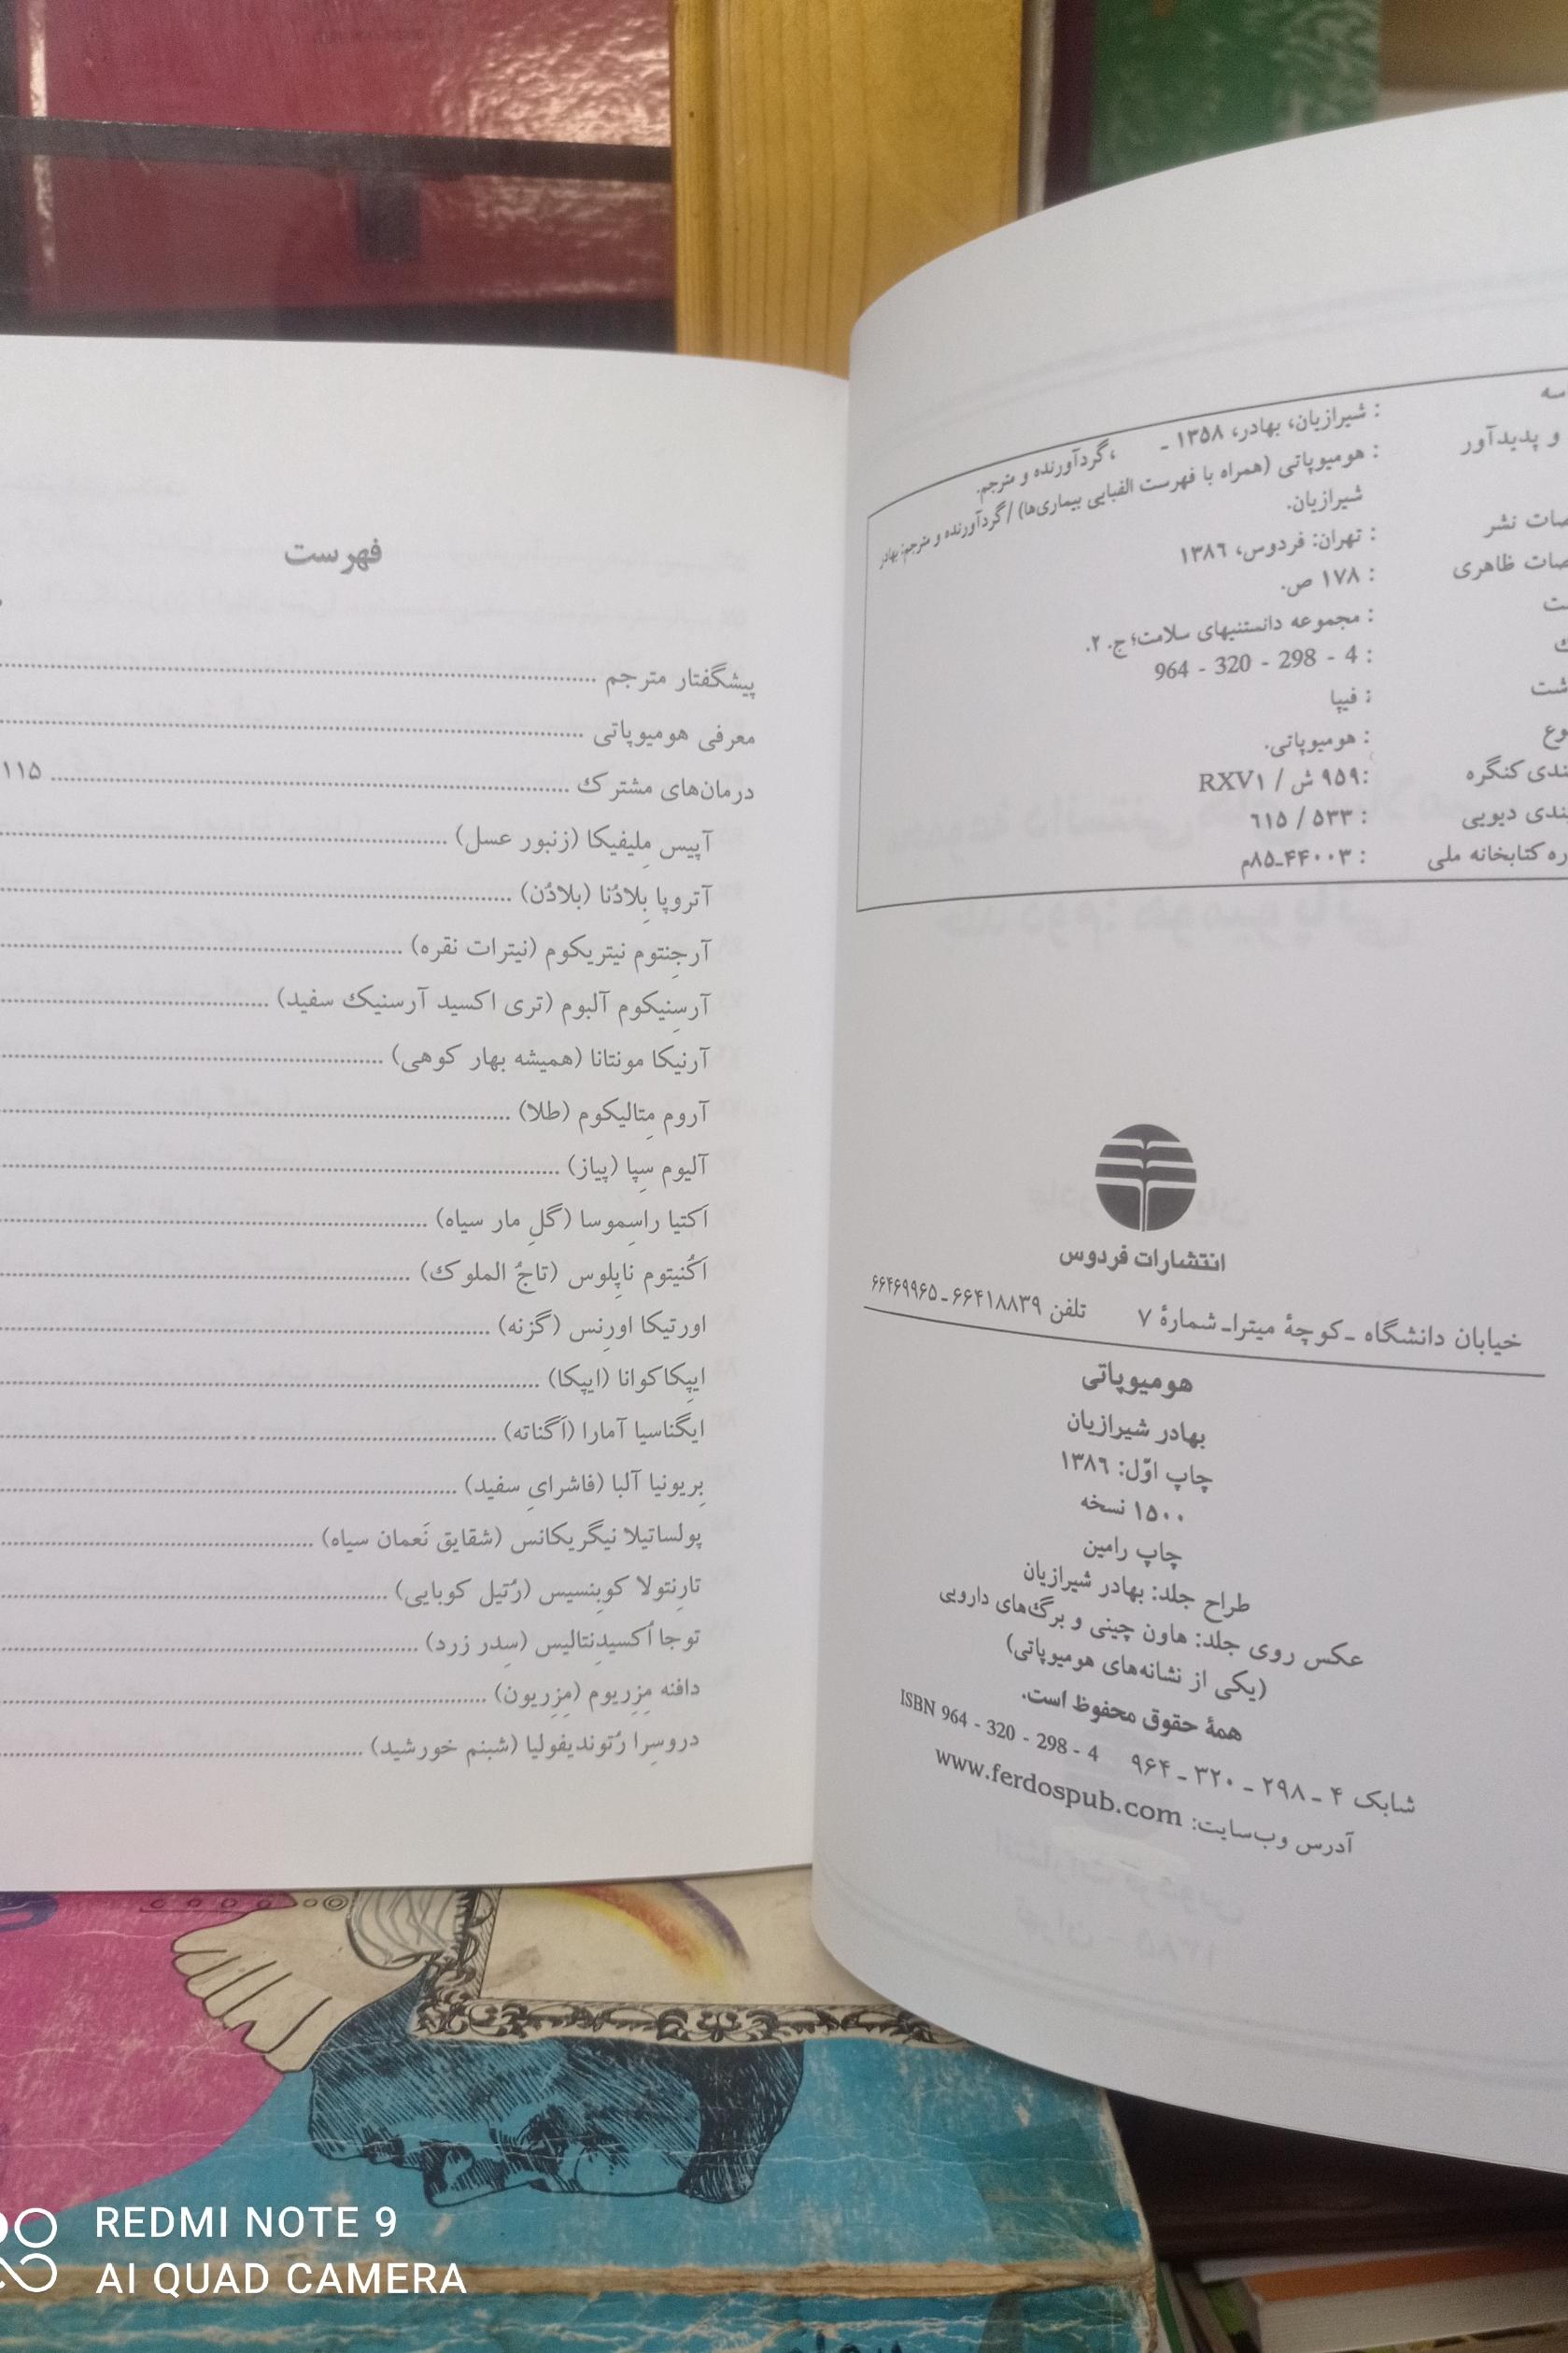 سه : شیرازیان، بهادر، ۱۳۵۸ ـ ، گردآورنده و مترجم.
و پدیدآور : هومیوپاتی (همراه با فهرست الفبایی بیماری‌ها) / گردآورنده و مترجم: بهادر
شیرازیان.
صات نشر : تهران: فردوس، ۱۳۸۶
صات ظاهری : ۱۷۸ ص.
ست : مجموعه دانستنیهای سلامت؛ ج. ۲.
ك : 964 - 320 - 298 - 4
شت : فیپا
وع : هومیوپاتی.
ندی کنگره : ۹۵۹ ش / RXV۱
ندی دیویی : ۵۳۳ / ۶۱۵
ره کتابخانه ملی : ۴۴۰۰۳ـ۸۵م
انتشارات فردوس
خیابان دانشگاه ـ کوچهٔ میترا ـ شمارهٔ ۷ تلفن ۶۶۴۱۸۸۳۹ ـ ۶۶۴۶۹۹۶۵
هومیوپاتی
بهادر شیرازیان
چاپ اوّل: ۱۳۸۶
۱۵۰۰ نسخه
چاپ رامین
طراح جلد: بهادر شیرازیان
عکس روی جلد: هاون چینی و برگ‌های دارویی
(یکی از نشانه‌های هومیوپاتی)
همهٔ حقوق محفوظ است.
شابک ۴ ـ ۲۹۸ ـ ۳۲۰ ـ ۹۶۴ ISBN 964 - 320 - 298 - 4
آدرس وب‌سایت: www.ferdospub.com
فهرست
پیشگفتار مترجم
معرفی هومیوپاتی
درمان‌های مشترك ۱۱۵
آپیس مِلیفیکا (زنبور عسل)
آتروپا بِلادُنا (بلادُن)
آرجِنتوم نیتریکوم (نیترات نقره)
آرسِنیکوم آلبوم (تری اکسید آرسنیك سفید)
آرنیکا مونتانا (همیشه بهار کوهی)
آروم مِتالیکوم (طلا)
آلیوم سِپا (پیاز)
اَکتیا راسِموسا (گلِ مار سیاه)
اَکُنیتوم ناپِلوس (تاجُ الملوك)
اورتیکا اورِنس (گزنه)
ایپِکاکوانا (ایپکا)
ایگناسیا آمارا (اَگناته)
بِریونیا آلبا (فاشرایِ سفید)
پولساتیلا نیگریکانس (شقایق نَعمان سیاه)
تارِنتولا کوبِنسیس (رُتیل کوبایی)
توجا اُکسیدِنتالیس (سِدر زرد)
دافنه مِزِریوم (مِزِریون)
دروسِرا رُتوندیفولیا (شبنم خورشید)
REDMI NOTE 9
AI QUAD CAMERA